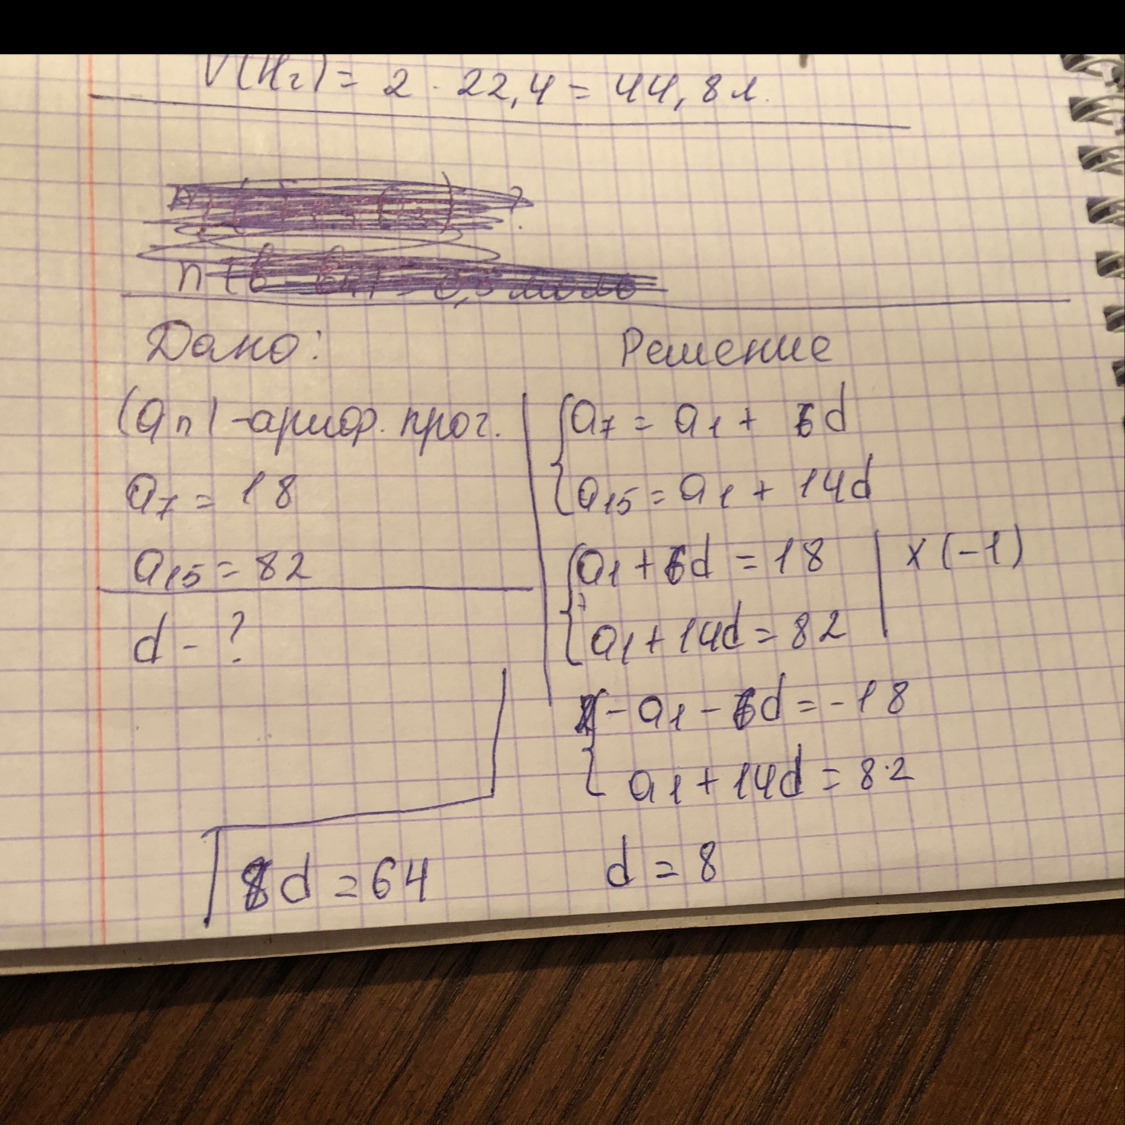 V(H₂) = 2 · 22,4 = 44,8 л.
Дано:
(an) - ариф. прог.
a₇ = 18
a₁₅ = 82
d - ?
Решение
{a₇ = a₁ + 6d
{a₁₅ = a₁ + 14d
{a₁ + 6d = 18 | × (-1)
{a₁ + 14d = 82
{-a₁ - 6d = -18
{a₁ + 14d = 82
8d = 64
d = 8